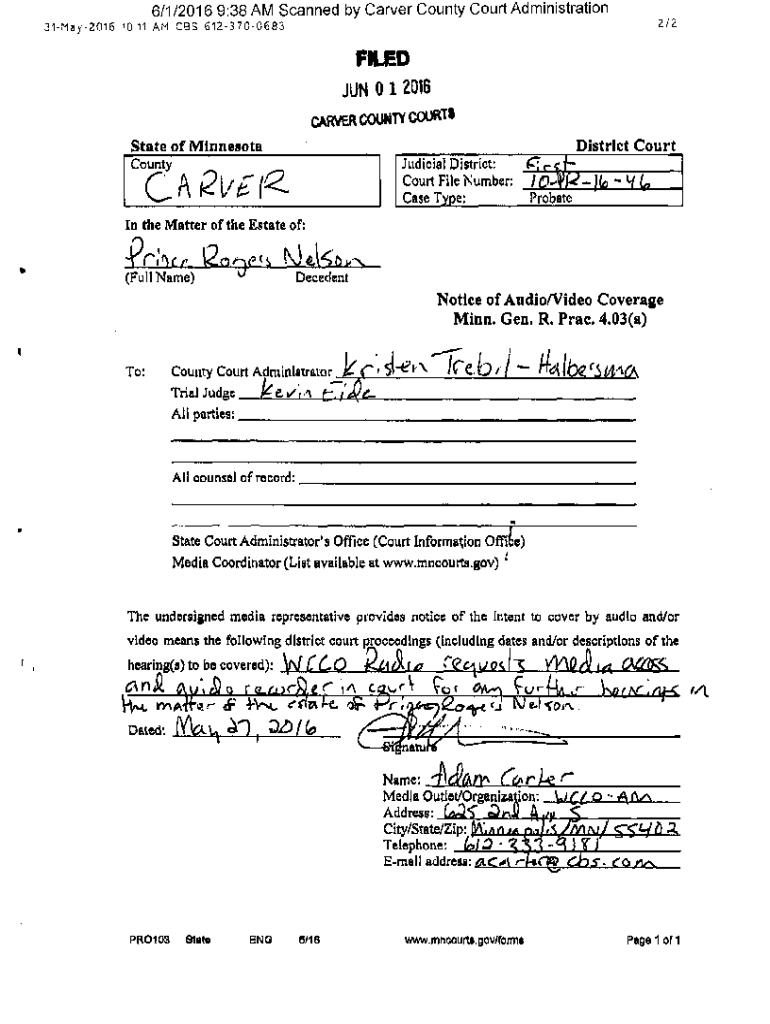 6/1/2016 9:38 AM Scanned by Carver County Court Administration
31-May-2016 10 11 AM CBS 612-370-0683 2/2
FILED
JUN 01 2016
CARVER COUNTY COURTS
State of Minnesota District Court
County
CARVER
Judicial District: First
Court File Number: 10-PR-16-46
Case Type: Probate
In the Matter of the Estate of:
Prince Rogers Nelson
(Full Name) Decedent
Notice of Audio/Video Coverage
Minn. Gen. R. Prac. 4.03(a)
To: County Court Administrator Kristen Trebil-Halbersma
Trial Judge Kevin Eide
All parties:
All counsel of record:
State Court Administrator's Office (Court Information Office)
Media Coordinator (List available at www.mncourts.gov)
The undersigned media representative provides notice of the intent to cover by audio and/or
video means the following district court proceedings (including dates and/or descriptions of the
hearing(s) to be covered): WCCO Radio requests media access
and audio recorder in court for any further hearings in
the matter of the estate of Prince Rogers Nelson.
Dated: May 27, 2016
Signature
Name: Adam Carter
Media Outlet/Organization: WCCO-AM
Address: 625 2nd Ave S
City/State/Zip: Minneapolis/MN/55402
Telephone: 612-333-9181
E-mail address: acarter@cbs.com
PRO103 State ENG 5/16 www.mncourts.gov/forms Page 1 of 1